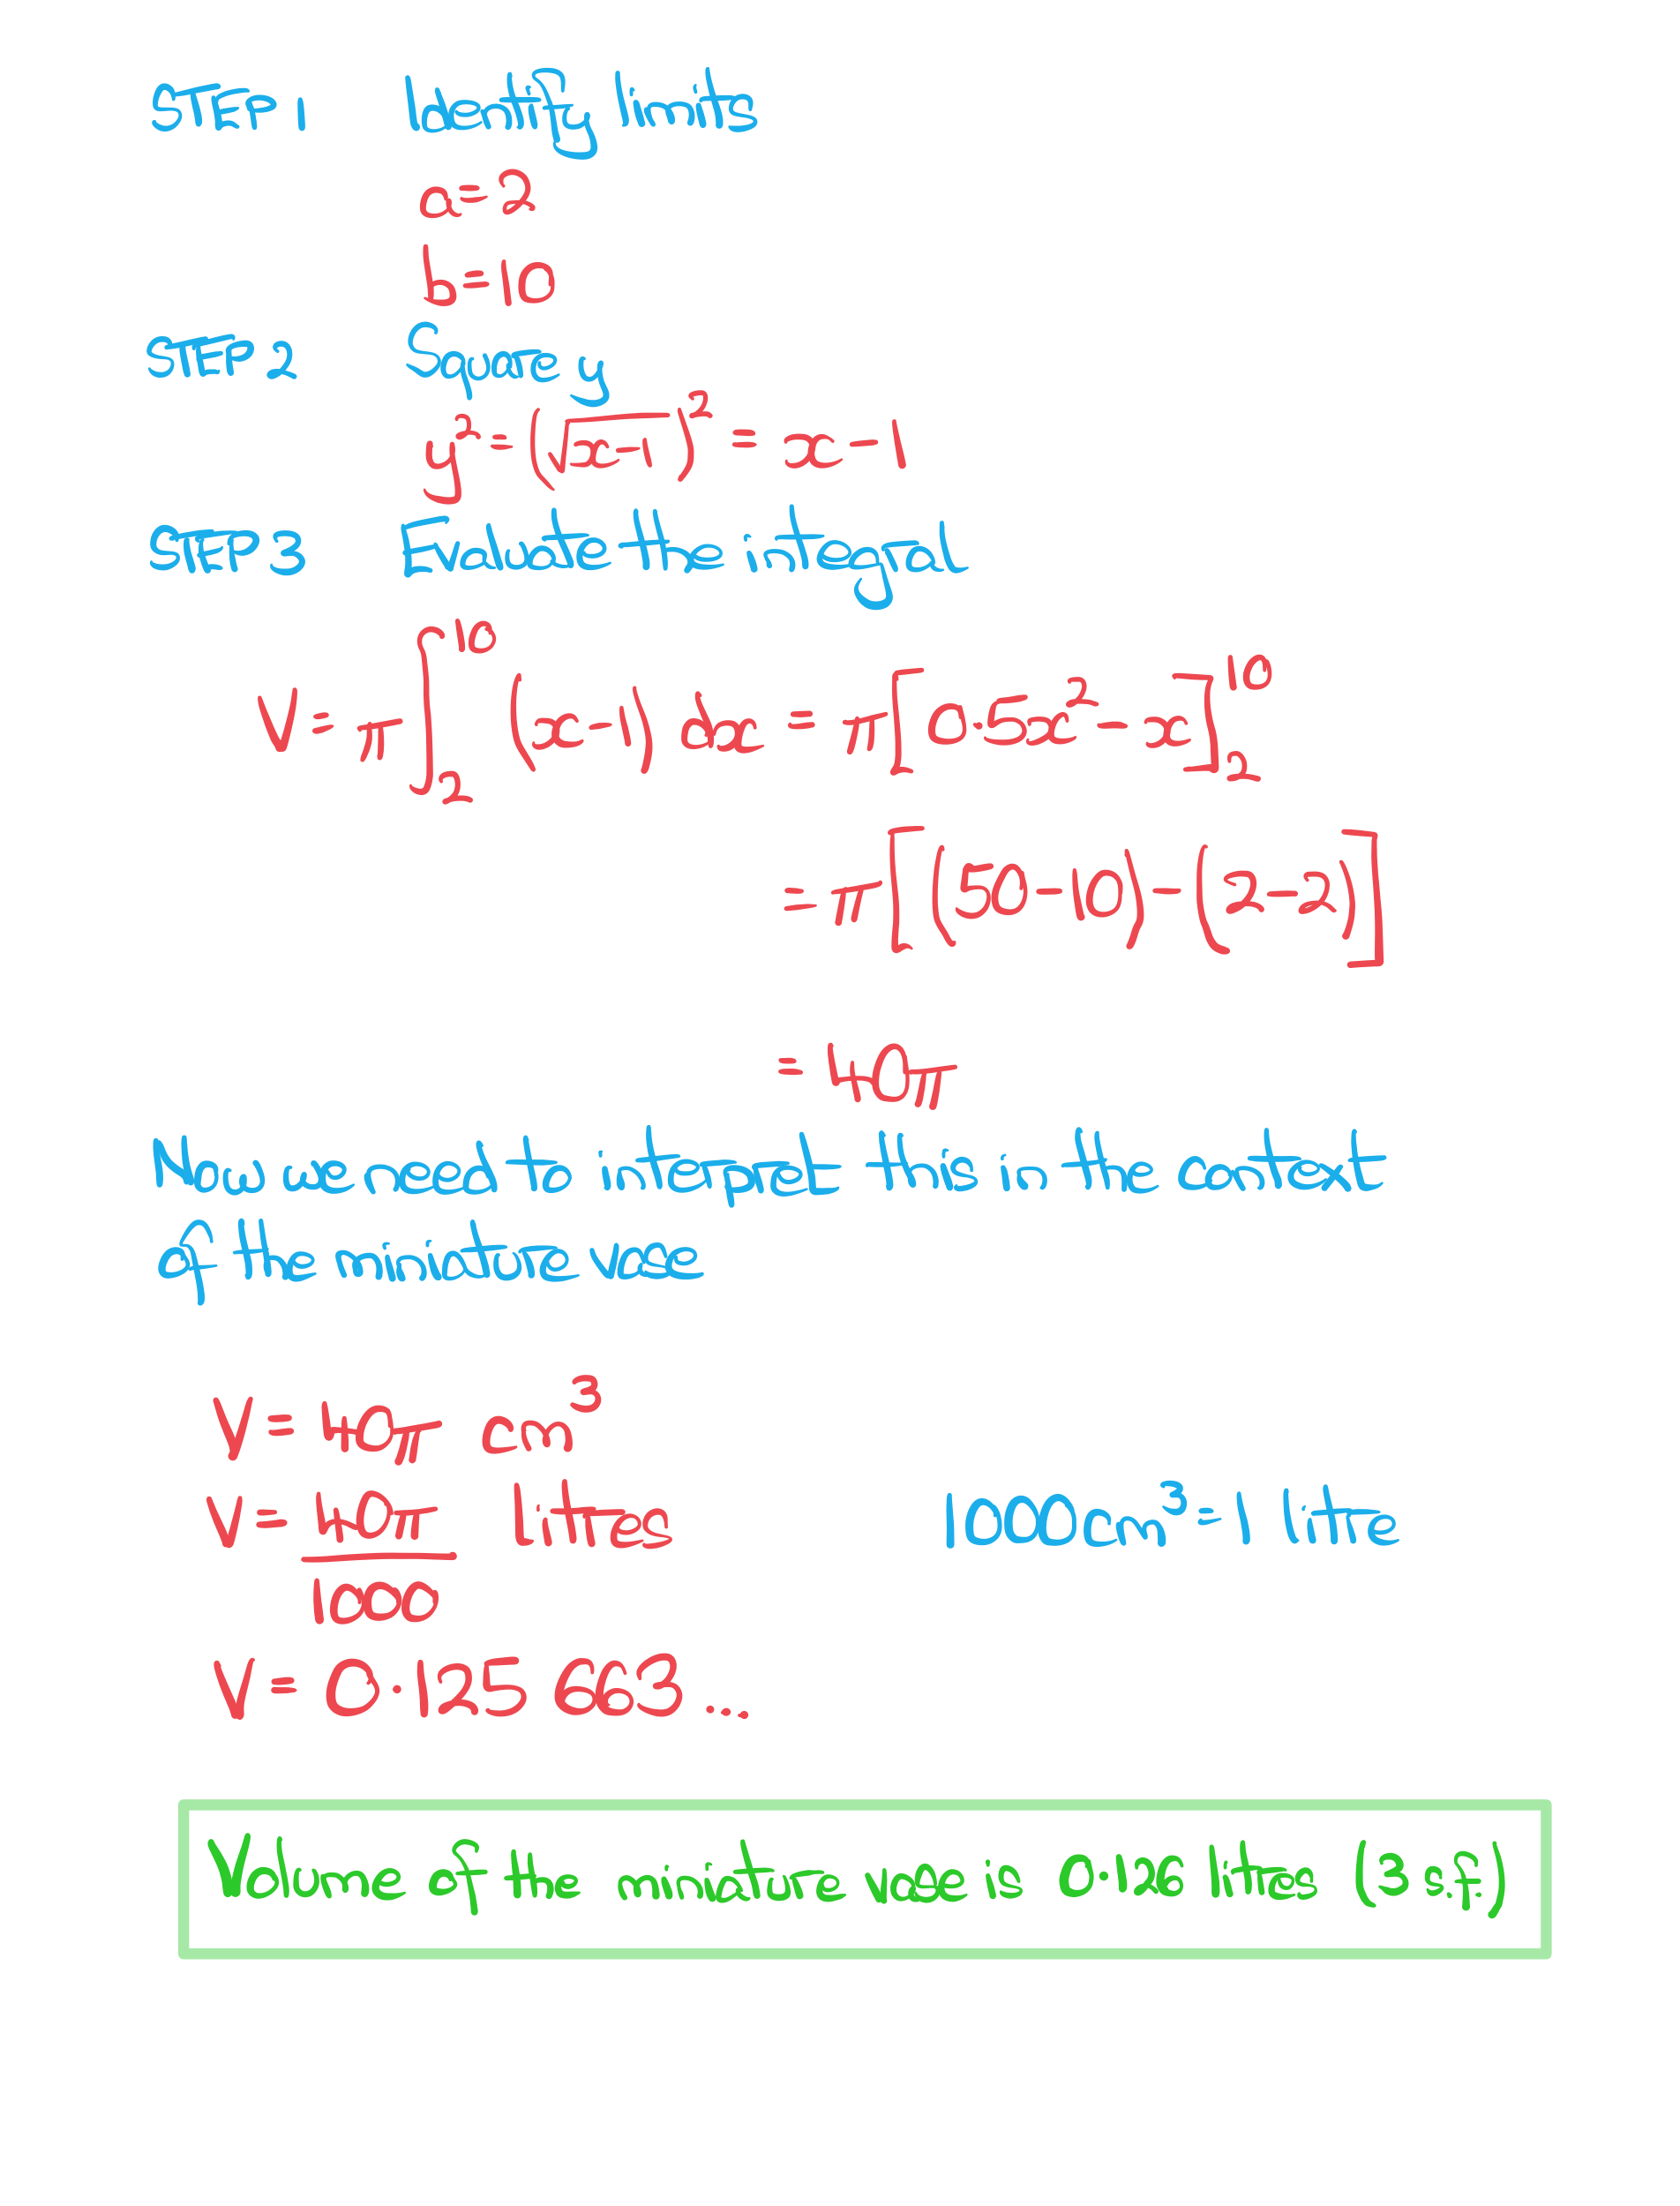 STEP 1 Identify limits
a = 2
b = 10
STEP 2 Square y
y² = (√(x-1))² = x - 1
STEP 3 Evaluate the integral
V = π ∫₂¹⁰ (x-1) dx = π[0·5x² - x]₂¹⁰
= π[(50-10) - (2-2)]
= 40π
Now we need to interpret this in the context
of the miniature vase
V = 40π cm³
V = 40π/1000 litres 1000cm³ = 1 litre
V = 0·125 663 ...
Volume of the miniature vase is 0·126 litres (3 s.f.)